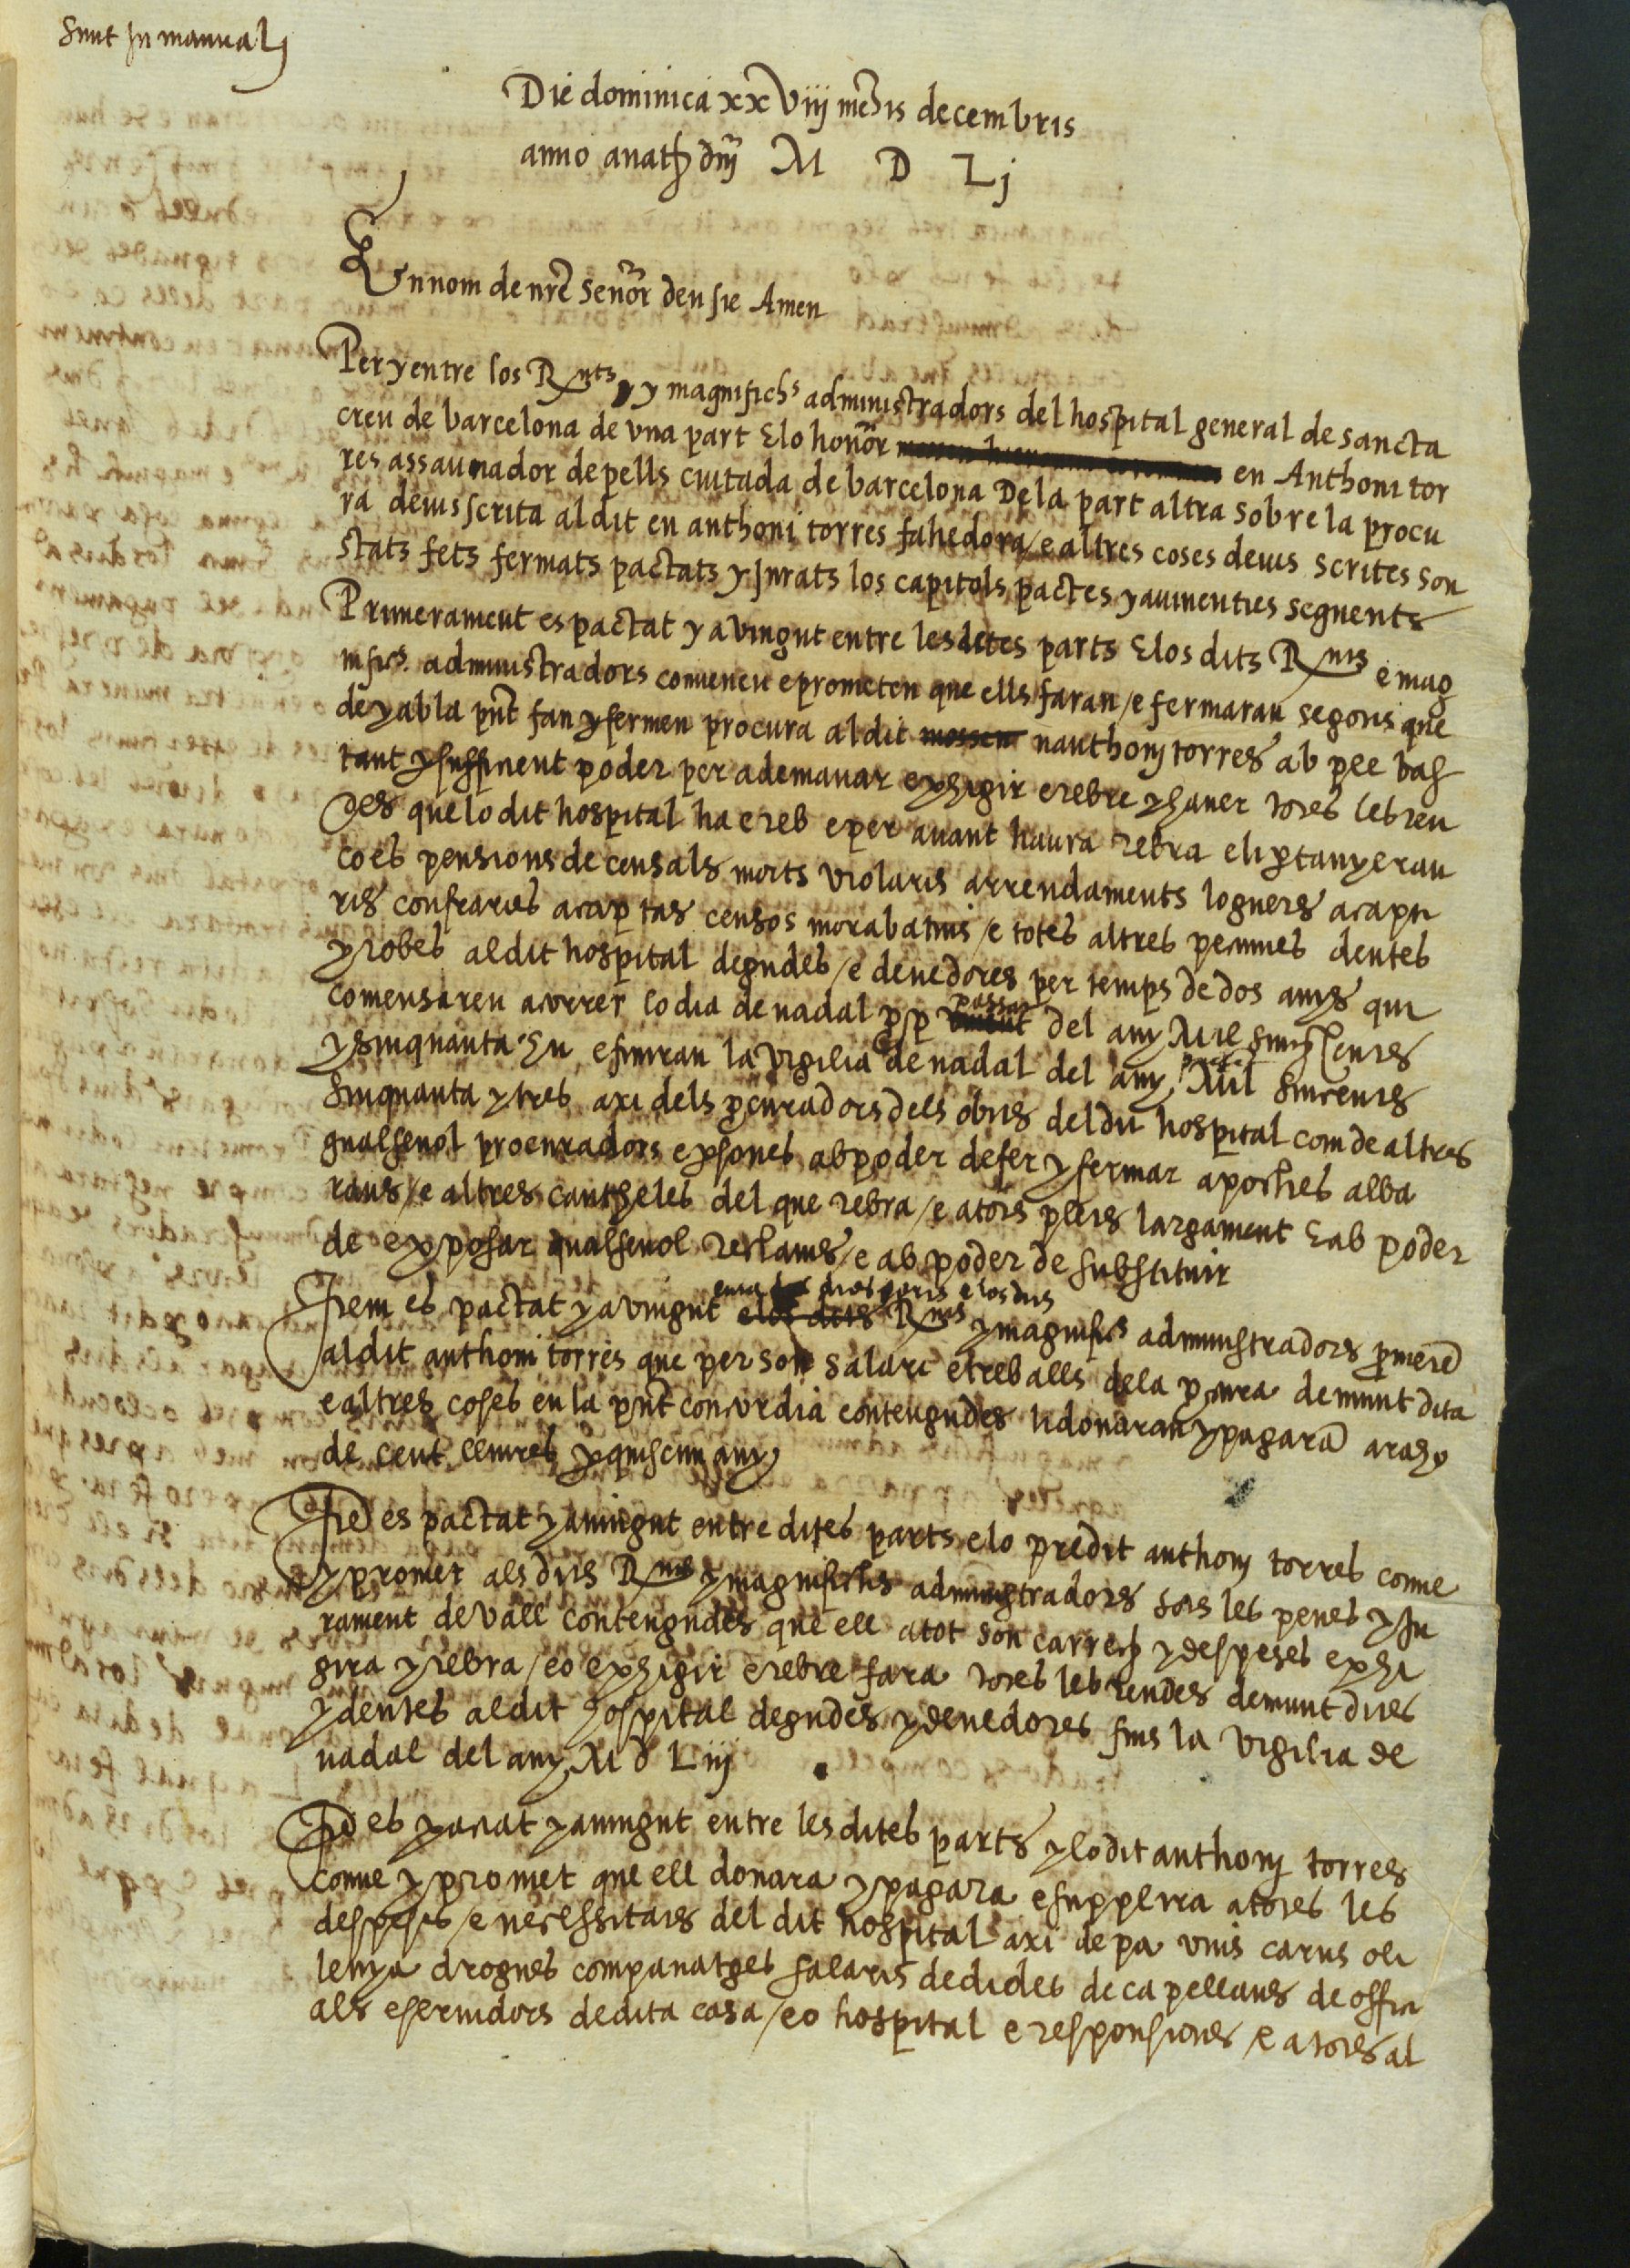 Sunt in manuali
Die dominica xxviiij mēsis decembris
anno a nath dnj M D Lj
En nom de nrē senōr deu sie Amen
Per y entre los Rnts y magnifichs administradors del hospital general de sancta
creu de barcelona de vna part E lo honōr en Anthoni tor
res assaunador de pells ciutada de barcelona De la part altra sobre la procu
ra deius scrita al dit en anthoni torres fahedora / e altres coses deius scrites son
stats fets fermats pactats y jurats los capitols pactes y auinenties seguents
Primerament es pactat y avingut entre les dites parts E los dits Rnts e mag
nifics administradors conuenen e prometen que ells faran / e fermaran segons que
de y ab la pnt fan y fermen procura al dit mossen nanthonj torres ab ple bas
tant y sufficient poder per a demanar exhigir e rebre y hauer totes les ren
des que lo dit hospital ha e reb e per auant haura rebra e li ptanyeran
ço es pensions de censals morts violaris arrendaments loguers acapti
ris confraries acaptes censos morabatins / e totes altres pecunies deutes
y robes al dit hospital degudes / e deuedores per temps de dos anys qui
comensaren a correr lo dia de nadal pp passat del any Mil sinchcents
y sinquanta hu e finiran la vigilia de nadal del any Mil sincents
sinquanta y tres axi dels pcuradors dels obits del dit hospital com de altres
qualseuol procuradors e psones ab poder de fer y fermar apoches alba
rans / e altres cautheles del que rebra / e a tots plets largament E ab poder
de exposar qualseuol reclams / e ab poder de substituir
Item es pactat y avingut entre les dites parts e los dits e los dits Rnts y magnifics administradors pmeten
al dit anthoni torres que per son salari e treballs de la pcura demunt dita
e altres coses en la pnt concordia contengudes li donaran y pagarā a raho
de cent lliures p quiscun any
Itē es pactat y auingut entre dites parts e lo predit anthonj torres conue
y promet als dits Rnts y magnifichs administradors sots les penes y ju
rament devall contengudes que ell a tot son carrech y despeses exhi
gira y rebra / eo exhigir e rebre fara totes les rendes demunt dites
y deutes al dit hospital degudes y deuedores fins la vigilia de
nadal del any M D L iij
Itē es pactat y auingut entre les dites parts y lo dit anthonj torres
conue y promet que ell donara y pagara e supplira a totes les
despeses / e necessitats del dit hospital axi de pa vins carns oli
lenya drogues companatges salaris de dides de capellans de offici
als e seruidors de dita casa / eo hospital e responsions / e a totes al